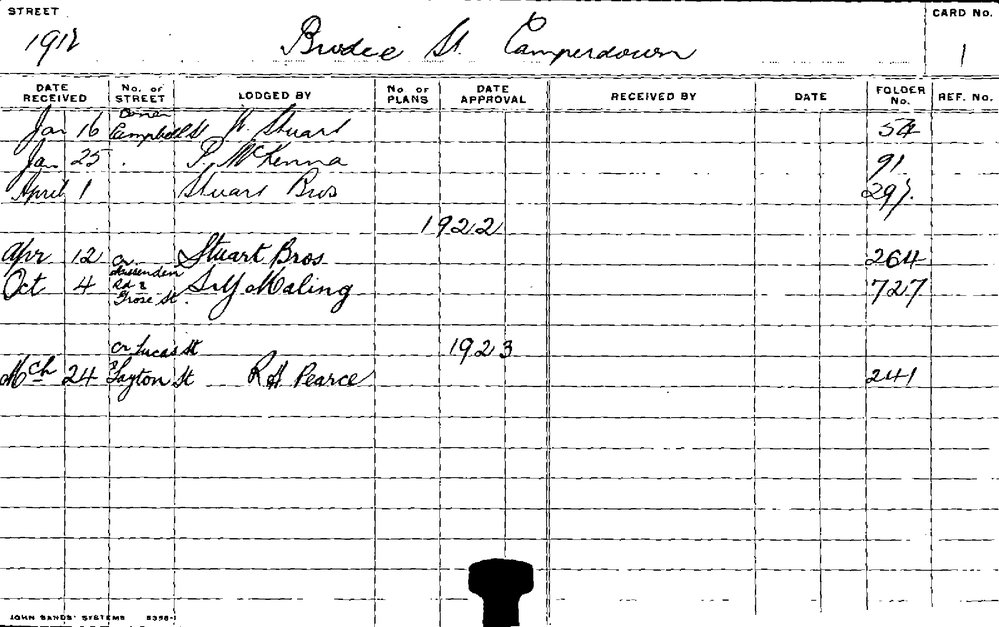 STREET
CARD No.
1912 Brodie St. Camperdown 1
DATE RECEIVED No. of STREET LODGED BY No of PLANS DATE APPROVAL RECEIVED BY DATE FOLDER No. REF. No.
Corner
Jan 16 Campbell St W. Stuart 54
Jan 25 . P. McKenna 91.
April 1 Stuart Bros 297.
1922
Apr 12 Stuart Bros 264
Cr.
Missenden
Oct 4 Rd & Maling 727
Grose St.
Cr Lucas St 1923
Mch 24 & Layton St R H Pearce 241
JOHN SANDS' SYSTEMS 5398-1